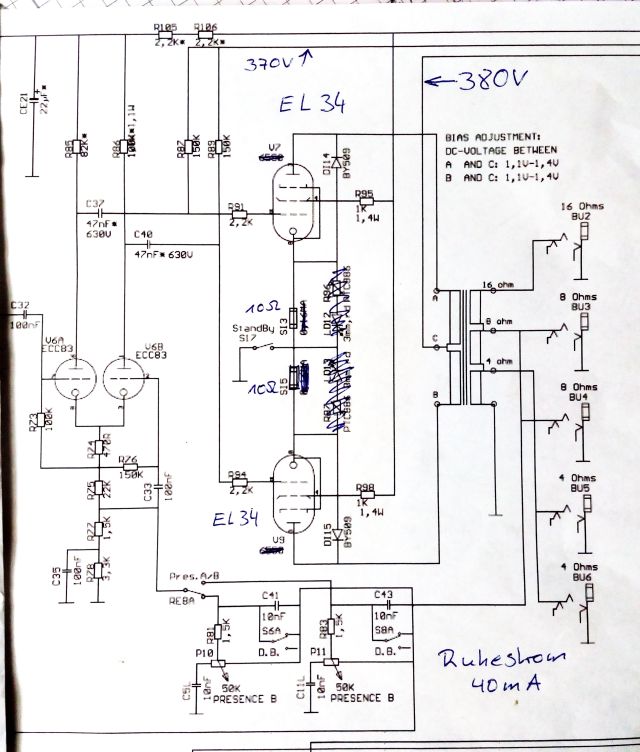 R105
2,2K*
R106
2,2K*
370V ↑
← 380V
EL34
CE21
22µF*
R85
82K*
R86
1,1W
R87
150K
R89
150K
V7
DI14
BY509
BIAS ADJUSTMENT:
DC-VOLTAGE BETWEEN
A AND C: 1,1V-1,4V
B AND C: 1,1V-1,4V
C37
47nF*
630V
R91
2,2K
R95
1K
1,4W
C40
47nF* 630V
16 Ohms
BU2
10Ω
S13
16 ohm
A
C32
100nF
StandBy
S17
8 Ohms
BU3
8 ohm
V6A
ECC83
V6B
ECC83
C
10Ω
S15
4 ohm
8 Ohms
BU4
B
R73
100K
R74
470R
R76
150K
C33
100nF
R75
22K
R94
2,2K
R98
1K
1,4W
4 Ohms
BU5
EL34
V9
R77
1,5K
DI15
BY509
C35
100nF
R78
3,3K
Pres.A/B
RE8A
4 Ohms
BU6
C41
10nF
C43
10nF
R81
1,5K
S6A
D.B.
R83
1,5K
S8A
D.B.
P10
P11
50K
PRESENCE B
50K
PRESENCE B
10nF
C11L
10nF
Ruhestrom
40mA